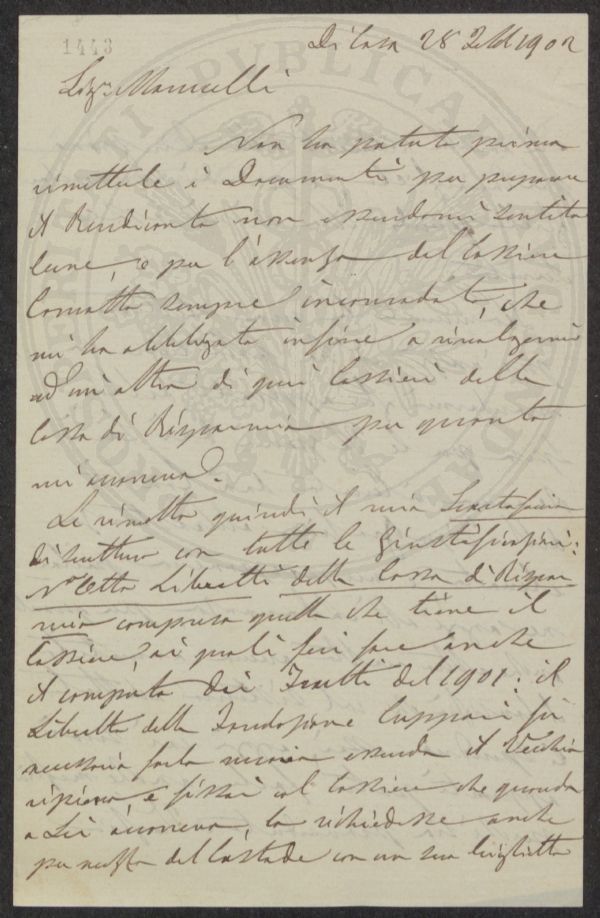 1443
Di Casa 28 Febb 1902
Sig.r Marucelli
Non ho potuto prima
rimetterle i Documenti per preparare
il Rendiconto non essendomi sentito
bene, e per l'assenza del Cassiere
sempre incomodato, che
mi ha obbligato infine a rivolgermi
ad un altro di quei Cassieri della
Cassa di Risparmio per quanto
mi occorreva.
Le rimetto quindi il mio
di scrittura con tutte le Giustificazioni:
N.o Otto Libretti della Cassa di Rispar
mio compreso quello che tiene il
Cassiere, ai quali feci fare anche
il computo dei Frutti del 1901: il
Libretto della Fondazione Cuppari fu
necessario farlo nuovo essendo il Vecchio
ripieno, e fissai col Cassiere che quando
a Lei occorreva, lo richiedesse anche
per mezzo del Custode con un suo biglietto